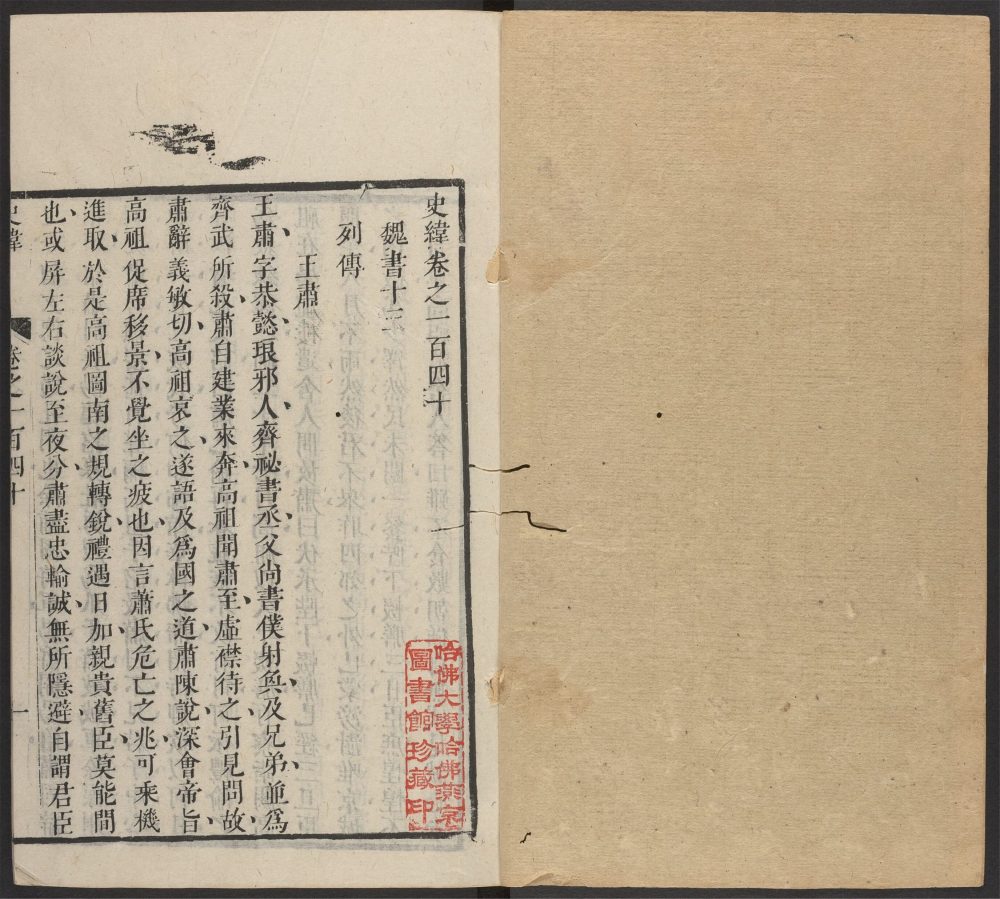 史緯卷之一百四十
魏書十三
列傳
王肅
王肅字恭懿琅邪人齊祕書丞父尚書僕射奐及兄弟並爲
齊武所殺肅自建業來奔高祖聞肅至虛襟待之引見問故
肅辭義敏切高祖哀之遂語及爲國之道肅陳說深會帝旨
高祖促席移景不覺坐之疲也因言蕭氏危亡之兆可乘機
進取於是高祖圖南之規轉銳禮遇日加親貴舊臣莫能間
也或屏左右談說至夜分肅盡忠輸誠無所隱避自謂君臣
史緯 卷之一百四十 一
哈佛大學哈佛燕京
圖書館珍藏印